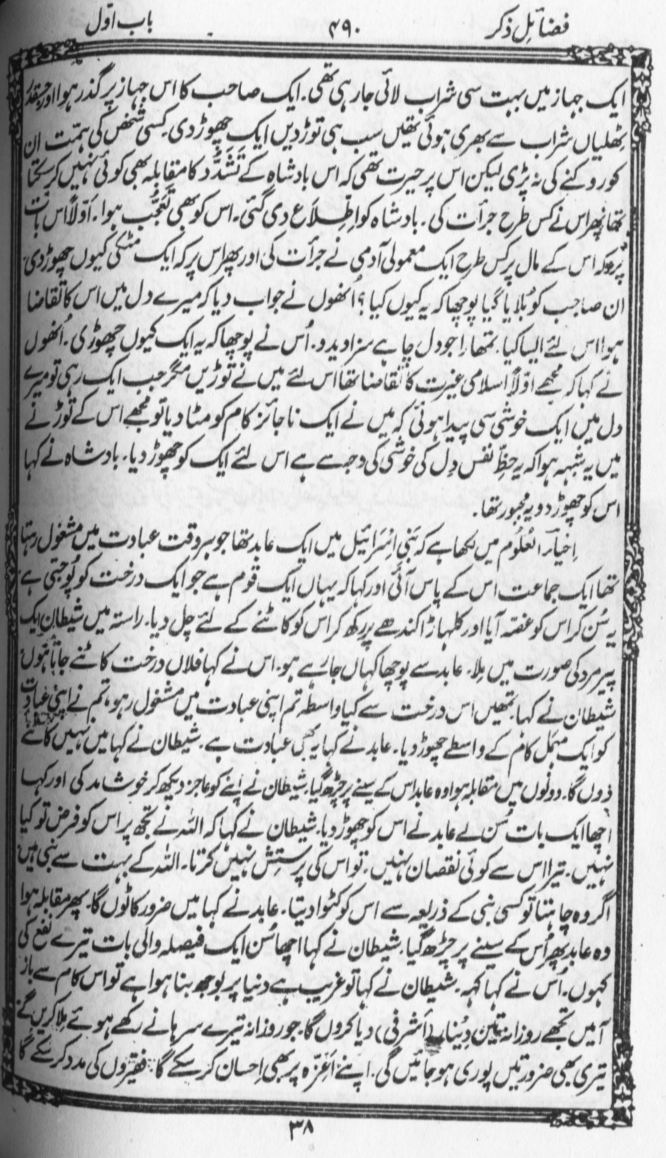 فضائل ذکر ۴۹۰ باب اوّل
ایک جہاز میں بہت سی شراب لائی جا رہی تھی۔ ایک صاحب کا اس جہاز پر گذر ہوا اور جسقدر
ٹھلیاں شراب سے بھری ہوئی تھیں سب ہی توڑ دیں ایک چھوڑ دی۔ کسی شخص کی ہمّت ان
کو روکنے کی نہ پڑی لیکن اس پر حیرت تھی کہ اس بادشاہ کے تَشدُّد کا مقابلہ بھی کوئی نہیں کر سکتا
تھا پھر اس نے کس طرح جرأت کی۔ بادشاہ کو اِطّلاع دی گئی۔ اس کو بھی تعجُّب ہوا۔ اوّلاً اس بات
پر کہ اس کے مال پر کس طرح ایک معمولی آدمی نے جرأت کی اور پھر اس پر کہ ایک مٹکی کیوں چھوڑ دی۔
ان صاحب کو بُلایا گیا پوچھا کہ یہ کیوں کیا؟ اُنھوں نے جواب دیا کہ میرے دل میں اس کا تقاضا
ہوا اس لئے ایسا کیا۔ تمھارا جو دل چاہے سزا دیدو۔ اُس نے پوچھا کہ یہ ایک کیوں چھوڑی۔ اُنھوں
نے کہا کہ مجھے اوّلاً اسلامی غیرت کا تقاضا تھا اس لئے میں نے توڑیں مگر جب ایک رہی تو میرے
دل میں ایک خوشی سی پیدا ہوئی کہ میں نے ایک ناجائز کام کو مٹا دیا تو مجھے اس کے توڑنے
میں یہ شبہ ہوا کہ یہ حظِّ نفس دِل کی خوشی کی وجہ سے ہے اس لئے ایک کو چھوڑ دیا۔ بادشاہ نے کہا
اس کو چھوڑ دو یہ مجبور تھا۔
اِحیاء العُلُوم میں لکھا ہے کہ بنی اسرائیل میں ایک عابد تھا جو ہر وقت عبادت میں مشغول رہتا
تھا ایک جماعت اس کے پاس آئی اور کہا کہ یہاں ایک قوم ہے جو ایک درخت کو پوجتی ہے
یہ سُن کر اس کو غصّہ آیا اور کلہاڑا کندھے پر رکھ کر اس کو کاٹنے کے لئے چل دیا۔ راستہ میں شیطان ایک
پیر مرد کی صورت میں مِلا۔ عابد سے پوچھا کہاں جا رہے ہو۔ اس نے کہا فلاں درخت کاٹنے جاتا ہوں
شیطان نے کہا تمھیں اس درخت سے کیا واسطہ تم اپنی عبادت میں مشغول رہو، تم نے اپنی عبادت
کو ایک مہمل کام کے واسطے چھوڑ دیا۔ عابد نے کہا یہ بھی عبادت ہے۔ شیطان نے کہا میں نہیں کاٹنے
دوں گا۔ دونوں میں مقابلہ ہوا وہ عابد اس کے سینے پر چڑھ گیا۔ شیطان نے اپنے کو عاجز دیکھ کر خوشامد کی اور کہا
اچھا ایک بات سُن لے عابد نے اس کو چھوڑ دیا۔ شیطان نے کہا کہ اللہ نے تجھ پر اس کو فرض تو کیا
نہیں۔ تیرا اس سے کوئی نقصان نہیں۔ تو اس کی پرستش نہیں کرتا۔ اللہ کے بہت سے نبی ہیں
اگر وہ چاہتا تو کسی نبی کے ذریعہ سے اس کو کٹوا دیتا۔ عابد نے کہا میں ضرور کاٹوں گا۔ پھر مقابلہ ہوا
وہ عابد پھر اُس کے سینے پر چڑھ گیا۔ شیطان نے کہا اچھا سُن ایک فیصلہ والی بات تیرے نفع کی
کہوں۔ اس نے کہا کہہ۔ شیطان نے کہا تو غریب ہے دنیا پر بوجھ بنا ہوا ہے تو اس کام سے باز
آ میں تجھے روزانہ تین دِینار (اشرفی) دیا کروں گا۔ جو روزانہ تیرے سرہانے رکھے ہوئے مِلا کریں گے
تیری بھی ضرورتیں پوری ہو جائیں گی۔ اپنے اَعِزّہ پر بھی اِحسان کر سکے گا۔ فقیروں کی مدد کر سکے گا
۳۸